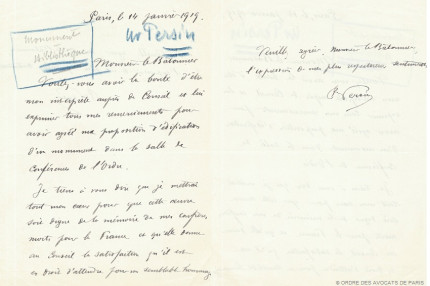 Paris, le 14 janvier 1919.
Mr Persin
Monument
Bibliothèque
Monsieur le Batonnier
Voulez-vous avoir la bonté d'être
mon interprète auprès du Conseil et lui
exprimer tous mes remerciements pour
avoir agréé ma proposition d'édification
d'un monument dans la salle de
Conférence de l'Ordre.
Je tiens à vous dire que je mettrai
tout mon cœur pour que cette œuvre
soit digne de la mémoire de mes confrères
morts pour la France et qu'elle donne
au Conseil la satisfaction qu'il est
en droit d'attendre pour un semblable hommage.
Veuillez agréer, Monsieur le Batonnier,
l'expression de mes plus respectueux sentiments
Persin
© ORDRE DES AVOCATS DE PARIS